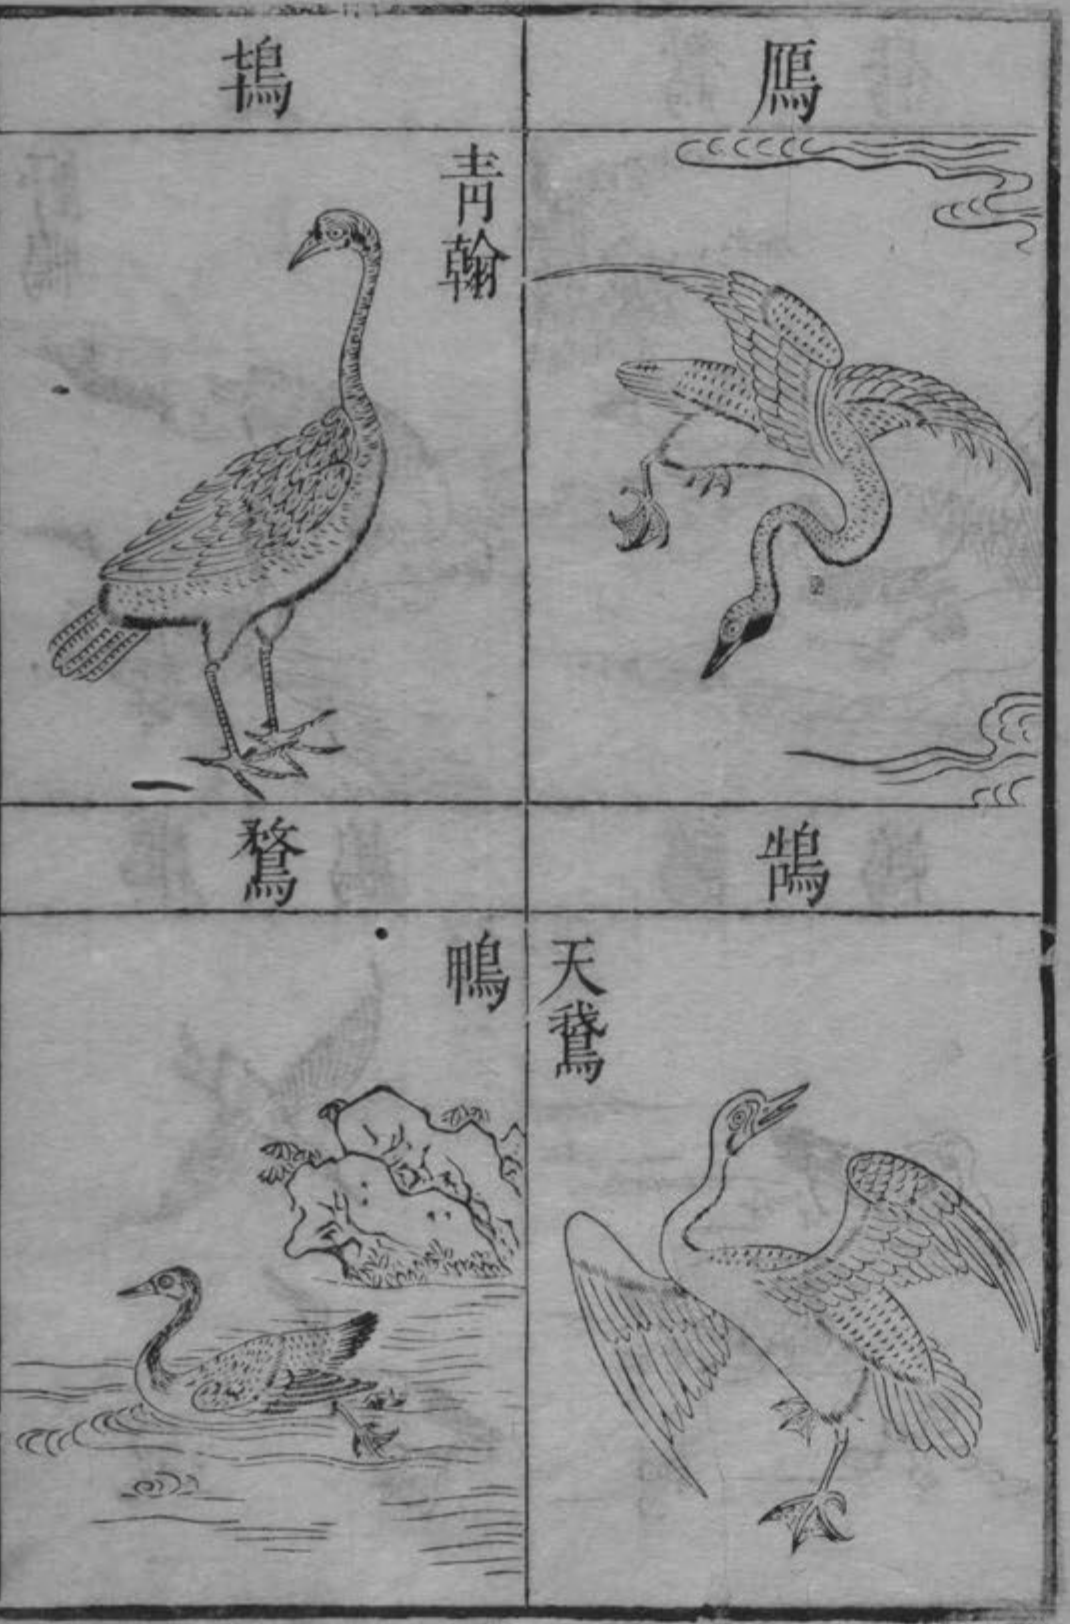 鴈
鴇
青翰
鵠
天鵞
鶩
鴨